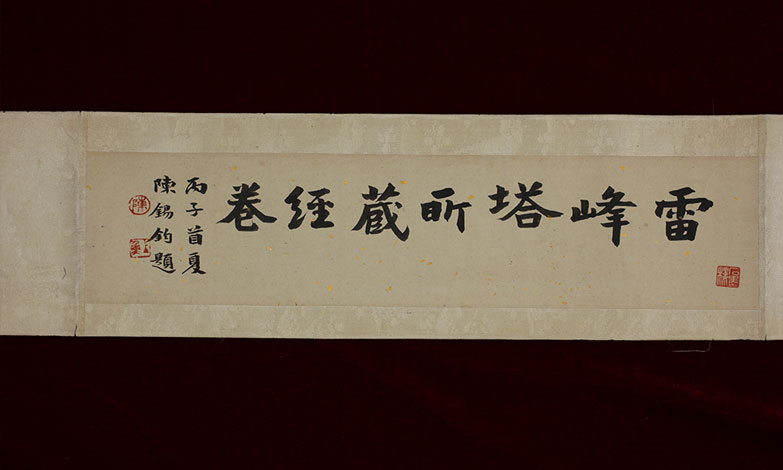 雷峰塔所蔵經卷
丙子首夏
陳錫鈞題